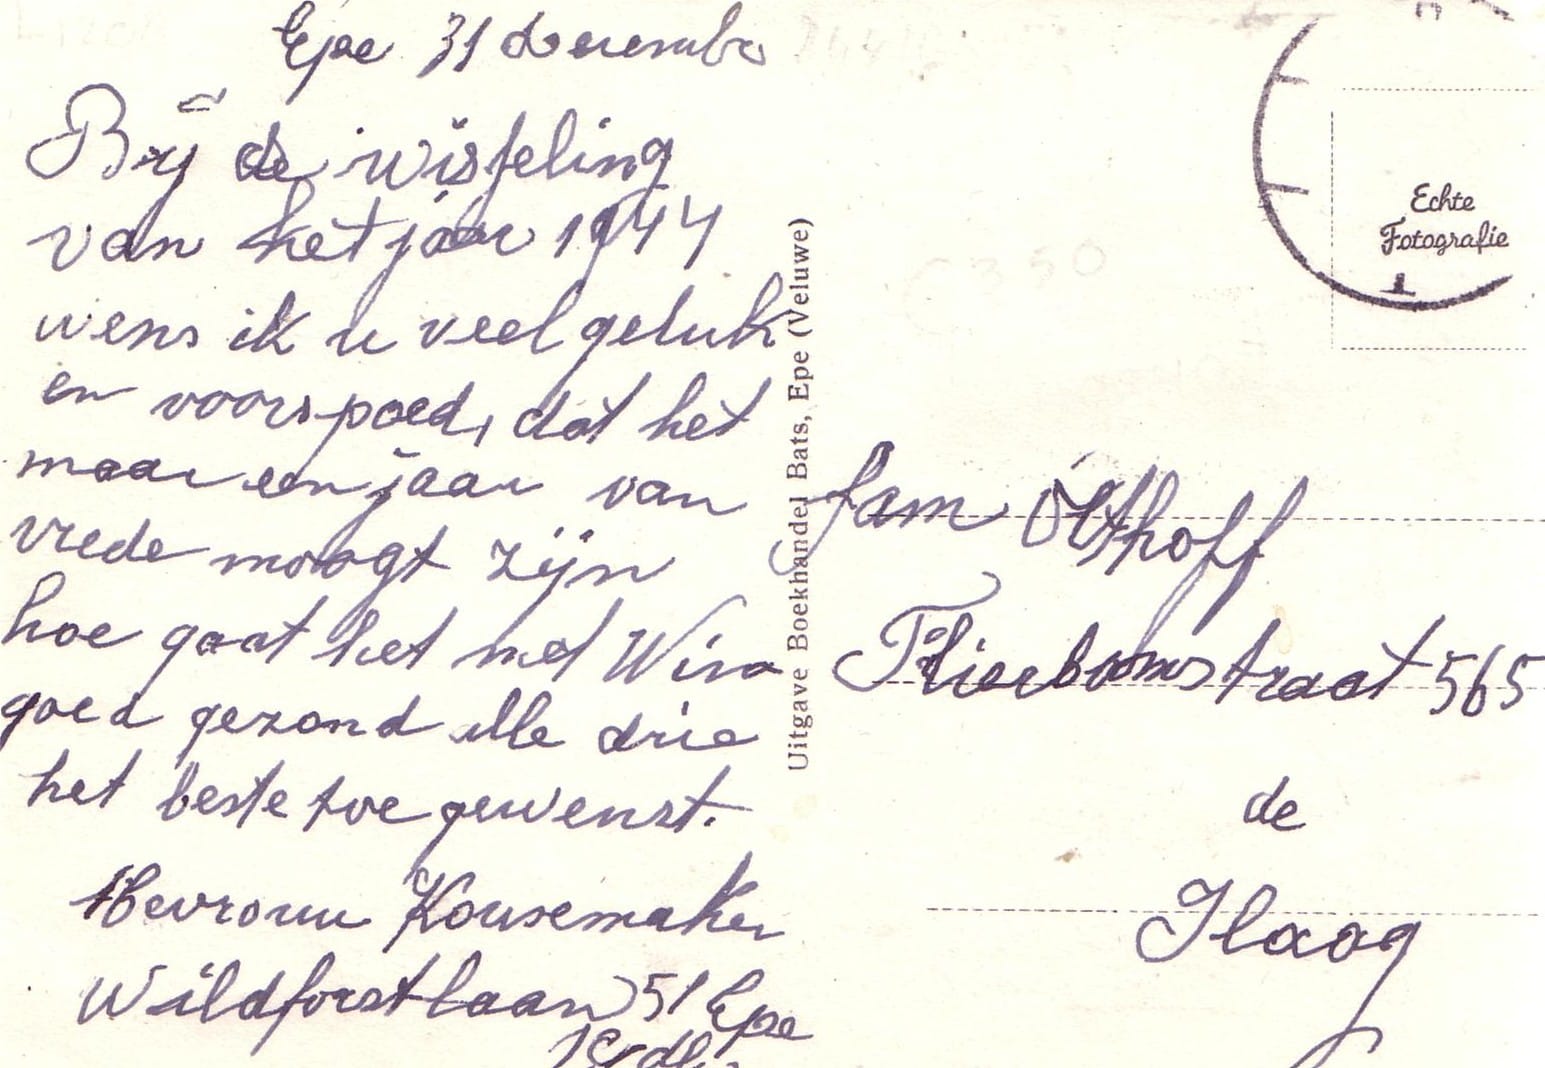 Epe 31 december
Bij de wisseling
van het jaar 1944
wens ik u veel geluk
en voorspoed, dat het
maar een jaar van
vrede moogt zijn
hoe gaat het met Wina
goed gezond alle drie
het beste toe gewenst.
Mevrouw Kousemaker
Wildforstlaan 51 Epe
Uitgave Boekhandel Bats, Epe (Veluwe)
Echte
Fotografie
fam Olthoff
Vlierboomstraat 565
de
Haag